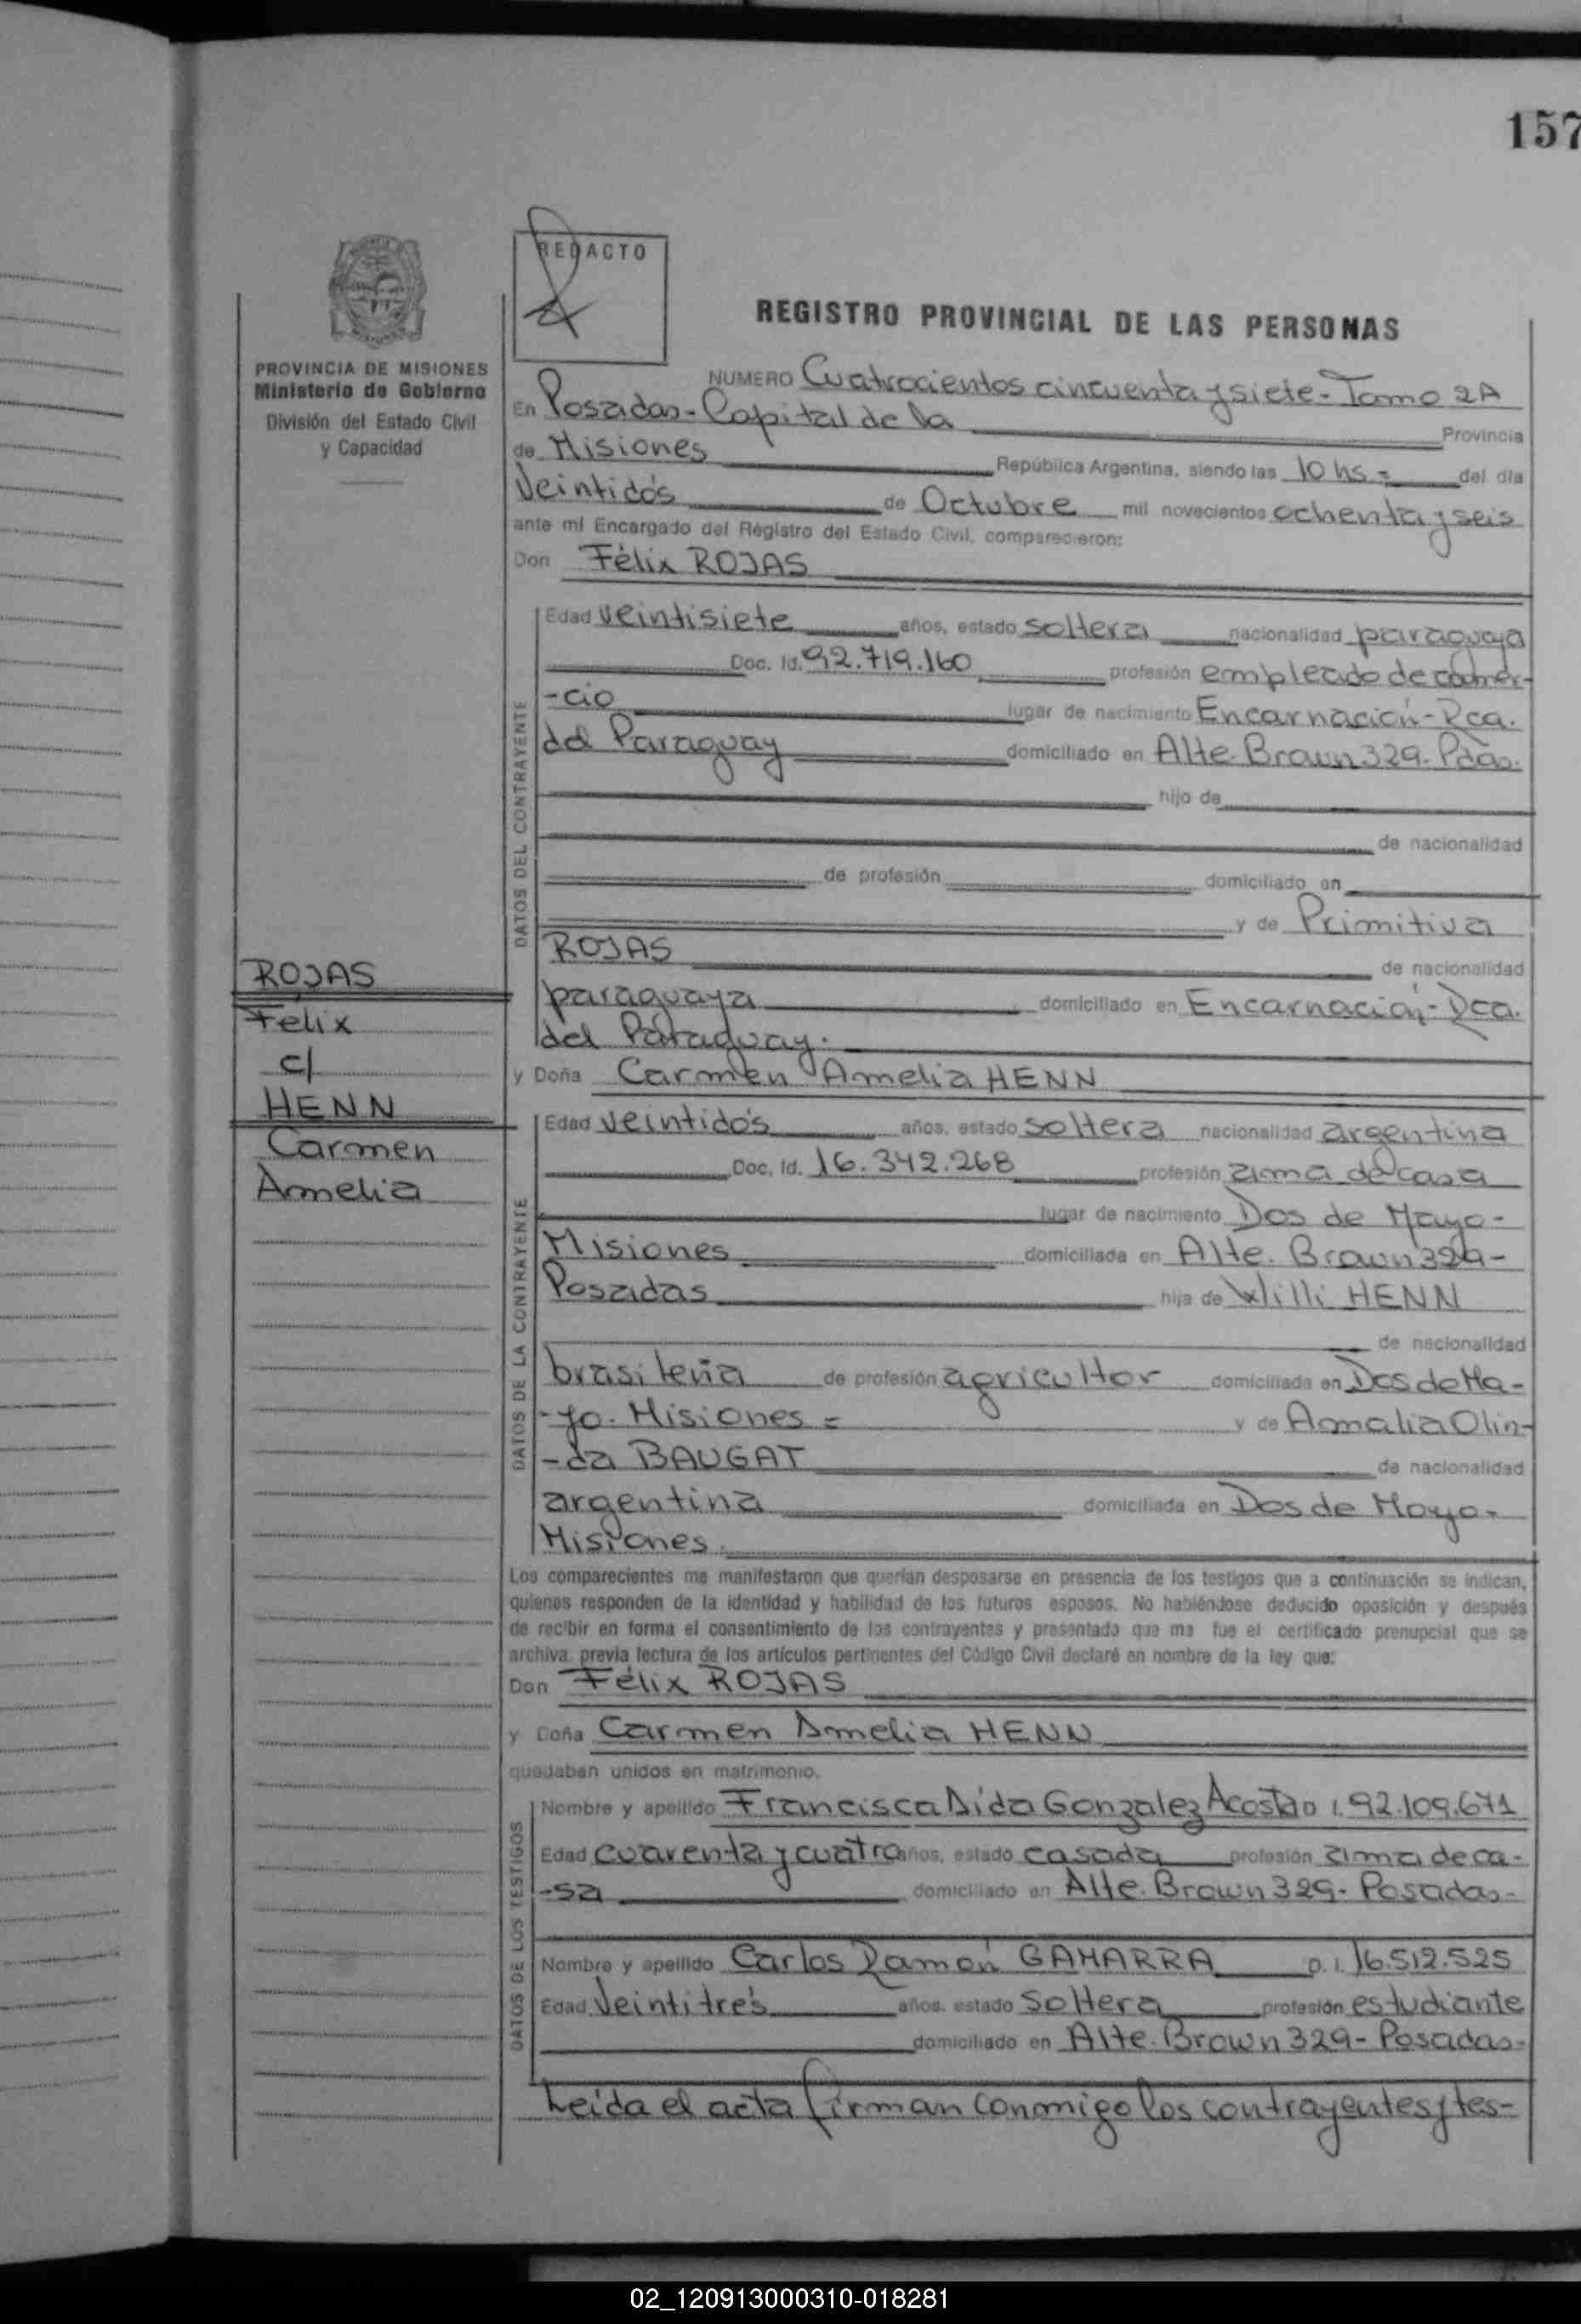 157
REDACTO
PROVINCIA DE MISIONES
Ministerio de Gobierno
División del Estado Civil
y Capacidad
REGISTRO PROVINCIAL DE LAS PERSONAS
NUMERO Cuatrocientos cincuenta y siete - Tomo 2A
En Posadas - Capital de la Provincia
de Misiones República Argentina, siendo las 10 hs = del día
Veintidós de Octubre mil novecientos ochenta y seis
ante mí Encargado del Registro del Estado Civil, comparecieron:
Don Félix ROJAS
DATOS DEL CONTRAYENTE
Edad veintisiete años, estado soltero nacionalidad paraguaya
Doc. Id. 92.719.160 profesión empleado de comer-
-cio lugar de nacimiento Encarnación - Rca.
del Paraguay domiciliado en Alte. Brown 329. Pdas.
hijo de
de nacionalidad
de profesión domiciliado en
y de Primitiva
ROJAS de nacionalidad
paraguaya domiciliado en Encarnación - Rca.
del Paraguay.
y Doña Carmen Amelia HENN
ROJAS
Félix
c/
HENN
Carmen
Amelia
DATOS DE LA CONTRAYENTE
Edad veintidós años, estado soltera nacionalidad argentina
Doc. Id. 16.342.268 profesión ama de casa
lugar de nacimiento Dos de Mayo -
Misiones domiciliada en Alte. Brown 329 -
Posadas hija de Willi HENN
de nacionalidad
brasileña de profesión agricultor domiciliada en Dos de Ma-
-yo. Misiones = y de Amalia Olin-
-da BAUGAT de nacionalidad
argentina domiciliada en Dos de Mayo -
Misiones.
Los comparecientes me manifestaron que querían desposarse en presencia de los testigos que a continuación se indican,
quienes responden de la identidad y habilidad de los futuros esposos. No habiéndose deducido oposición y después
de recibir en forma el consentimiento de los contrayentes y presentado que me fue el certificado prenupcial que se
archiva, previa lectura de los artículos pertinentes del Código Civil declaré en nombre de la ley que:
Don Félix ROJAS
y Doña Carmen Amelia HENN
quedaban unidos en matrimonio.
DATOS DE LOS TESTIGOS
Nombre y apellido Francisca Aída Gonzalez Acosta D. I. 92.109.671
Edad cuarenta y cuatro años, estado casada profesión ama de ca-
-sa domiciliado en Alte. Brown 329 - Posadas -
Nombre y apellido Carlos Ramón GAMARRA D. I. 16.512.525
Edad Veintitrés años, estado soltero profesión estudiante
domiciliado en Alte. Brown 329 - Posadas -
Leída el acta firman conmigo los contrayentes y tes-
02_120913000310-018281